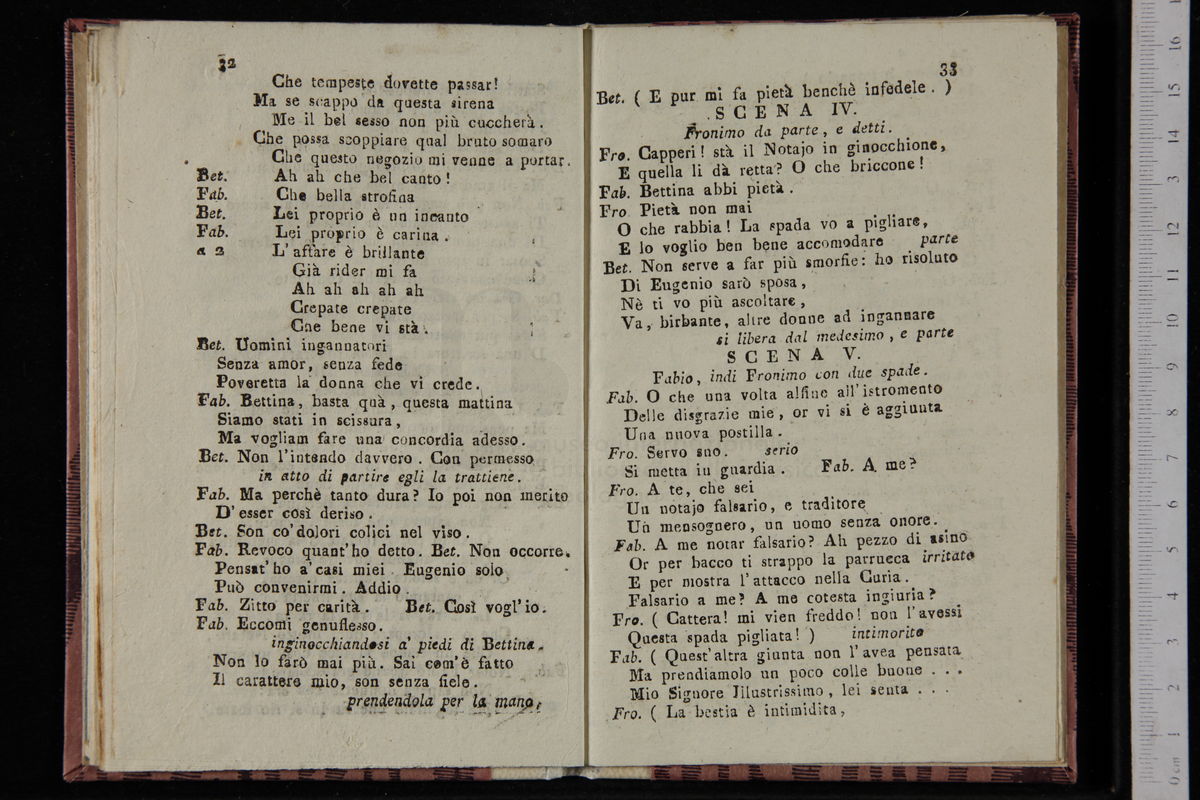 32
Che tempeste dovette passar!
Ma se scappo da questa sirena
Me il bel sesso non più cuccherà.
Che possa scoppiare qual bruto somaro
Che questo negozio mi venne a portar.
Bet. Ah ah che bel canto!
Fab. Che bella strofina
Bet. Lei proprio è un incanto
Fab. Lei proprio è carina.
a 2 L'affare è brillante
Già rider mi fa
Ah ah ah ah ah
Crepate crepate
Che bene vi stà.
Bet. Uomini ingannatori
Senza amor, senza fede
Poveretta la donna che vi crede.
Fab. Bettina, basta quà, questa mattina
Siamo stati in scissura,
Ma vogliam fare una concordia adesso.
Bet. Non l'intendo davvero. Con permesso
in atto di partire egli la trattiene.
Fab. Ma perchè tanto dura? Io poi non merito
D'esser così deriso.
Bet. Son co'dolori colici nel viso.
Fab. Revoco quant'ho detto. Bet. Non occorre.
Pensat'ho a'casi miei. Eugenio solo
Può convenirmi. Addio.
Fab. Zitto per carità. Bet. Così vogl'io.
Fab. Eccomi genuflesso.
inginocchiandosi a' piedi di Bettina.
Non lo farò mai più. Sai com'è fatto
Il carattere mio, son senza fiele.
prendendola per la mano,
33
Bet. ( E pur mi fa pietà benchè infedele. )
SCENA IV.
Fronimo da parte, e detti.
Fro. Capperi! stà il Notajo in ginocchione,
E quella li dà retta? O che briccone!
Fab. Bettina abbi pietà.
Fro Pietà non mai
O che rabbia! La spada vo a pigliare,
E lo voglio ben bene accomodare parte
Bet. Non serve a far più smorfie: ho risoluto
Di Eugenio sarò sposa,
Nè ti vo più ascoltare,
Va, birbante, altre donne ad ingannare
si libera dal medesimo, e parte
SCENA V.
Fabio, indi Fronimo con due spade.
Fab. O che una volta alfine all'istromento
Delle disgrazie mie, or vi si è aggiunta
Una nuova postilla.
Fro. Servo suo. serio
Si metta in guardia. Fab. A me?
Fro. A te, che sei
Un notajo falsario, e traditore
Un mensognero, un uomo senza onore.
Fab. A me notar falsario? Ah pezzo di asino
Or per bacco ti strappo la parrucca irritato
E per mostra l'attacco nella Curia.
Falsario a me? A me cotesta ingiuria?
Fro. ( Cattera! mi vien freddo! non l'avessi
Questa spada pigliata! ) intimorito
Fab. ( Quest'altra giunta non l'avea pensata
Ma prendiamolo un poco colle buone . . .
Mio Signore Jllustrissimo, lei senta . . .
Fro. ( La bestia è intimidita,